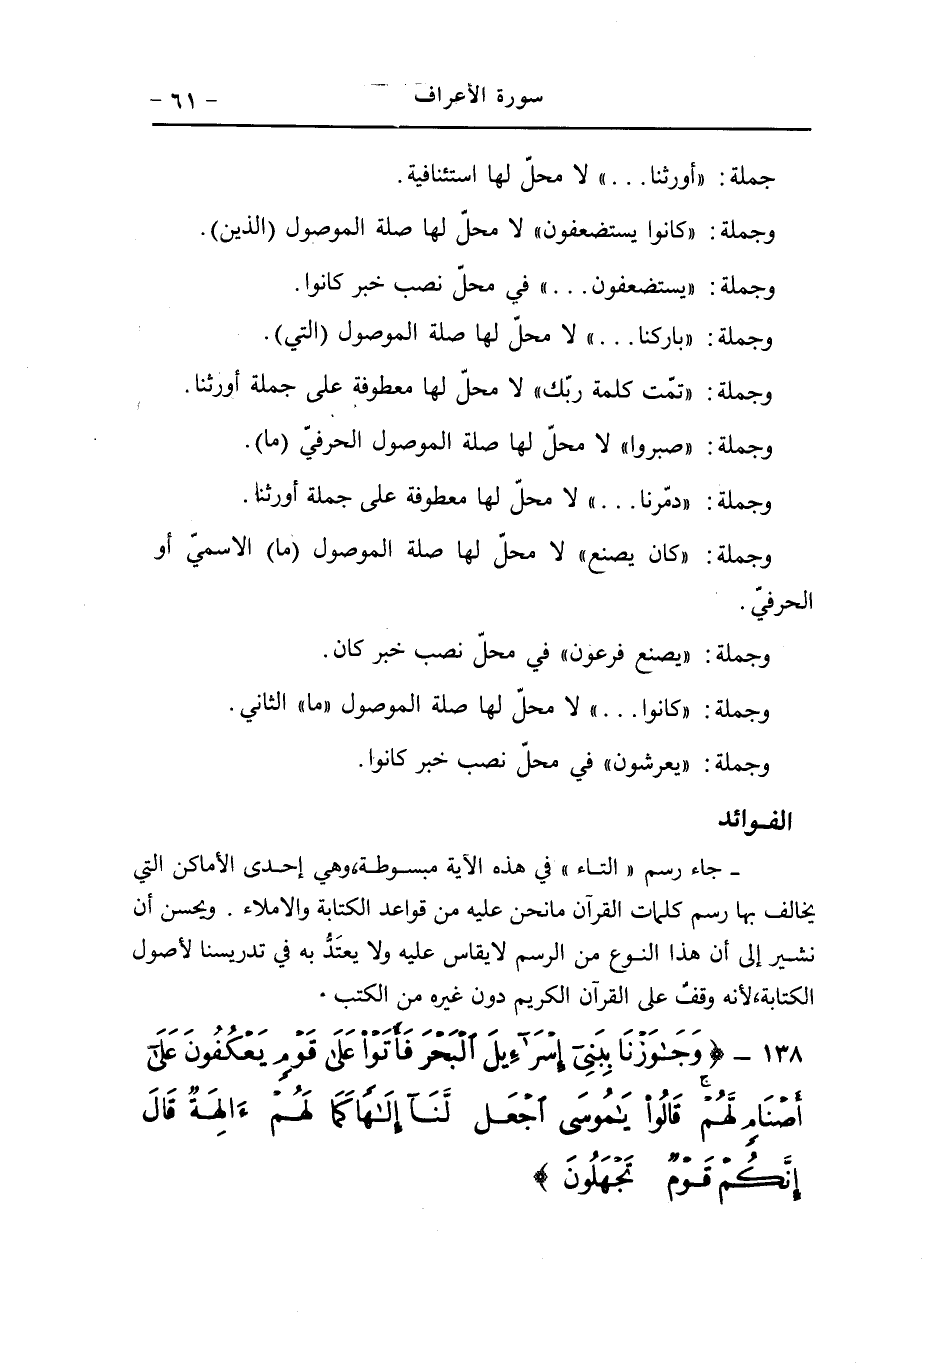 سورة الأعراف - ٦١ -
جملة: «أورثنا. . .» لا محلّ لها استئنافية.
وجملة: «كانوا يستضعفون» لا محلّ لها صلة الموصول (الذين).
وجملة: «يستضعفون. . .» في محلّ نصب خبر كانوا.
وجملة: «باركنا. . .» لا محلّ لها صلة الموصول (التي).
وجملة: «تمّت كلمة ربّك» لا محلّ لها معطوفة على جملة أورثنا.
وجملة: «صبروا» لا محلّ لها صلة الموصول الحرفيّ (ما).
وجملة: «دمّرنا. . .» لا محلّ لها معطوفة على جملة أورثنا.
وجملة: «كان يصنع» لا محلّ لها صلة الموصول (ما) الاسميّ أو
الحرفيّ.
وجملة: «يصنع فرعون» في محلّ نصب خبر كان.
وجملة: «كانوا. . .» لا محلّ لها صلة الموصول «ما» الثاني.
وجملة: «يعرشون» في محلّ نصب خبر كانوا.
الفوائد
ـ جاء رسم « التاء » في هذه الآية مبسوطة،وهي إحدى الأماكن التي
يخالف بها رسم كلمات القرآن مانحن عليه من قواعد الكتابة والاملاء . ويحسن أن
نشير إلى أن هذا النوع من الرسم لايقاس عليه ولا يعتَدُّ به في تدريسنا لأصول
الكتابة،لأنه وقفٌ على القرآن الكريم دون غيره من الكتب .
١٣٨ ـ ﴿ وَجَـٰوَزْنَا بِبَنِىٓ إِسْرَٰٓءِيلَ ٱلْبَحْرَ فَأَتَوْا۟ عَلَىٰ قَوْمٍ يَعْكُفُونَ عَلَىٰٓ
أَصْنَامٍ لَّهُمْ ۚ قَالُوا۟ يَـٰمُوسَى ٱجْعَل لَّنَآ إِلَـٰهًا كَمَا لَهُمْ ءَالِهَةٌ قَالَ
إِنَّكُمْ قَوْمٌ تَجْهَلُونَ ﴾